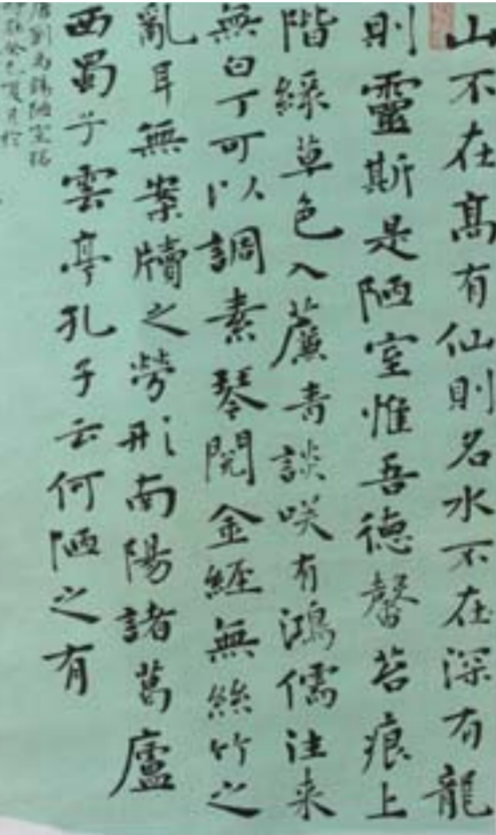 山不在髙有仙則名水不在深有龍
則靈斯是陋室惟吾德馨苔痕上
階綠草色入簾青談咲有鴻儒往来
無白丁可以調素琴閱金經無絲竹之
亂耳無案牘之勞形南陽諸葛廬
西蜀子雲亭孔子云何陋之有
唐劉禹錫陋室銘
癸巳夏月於